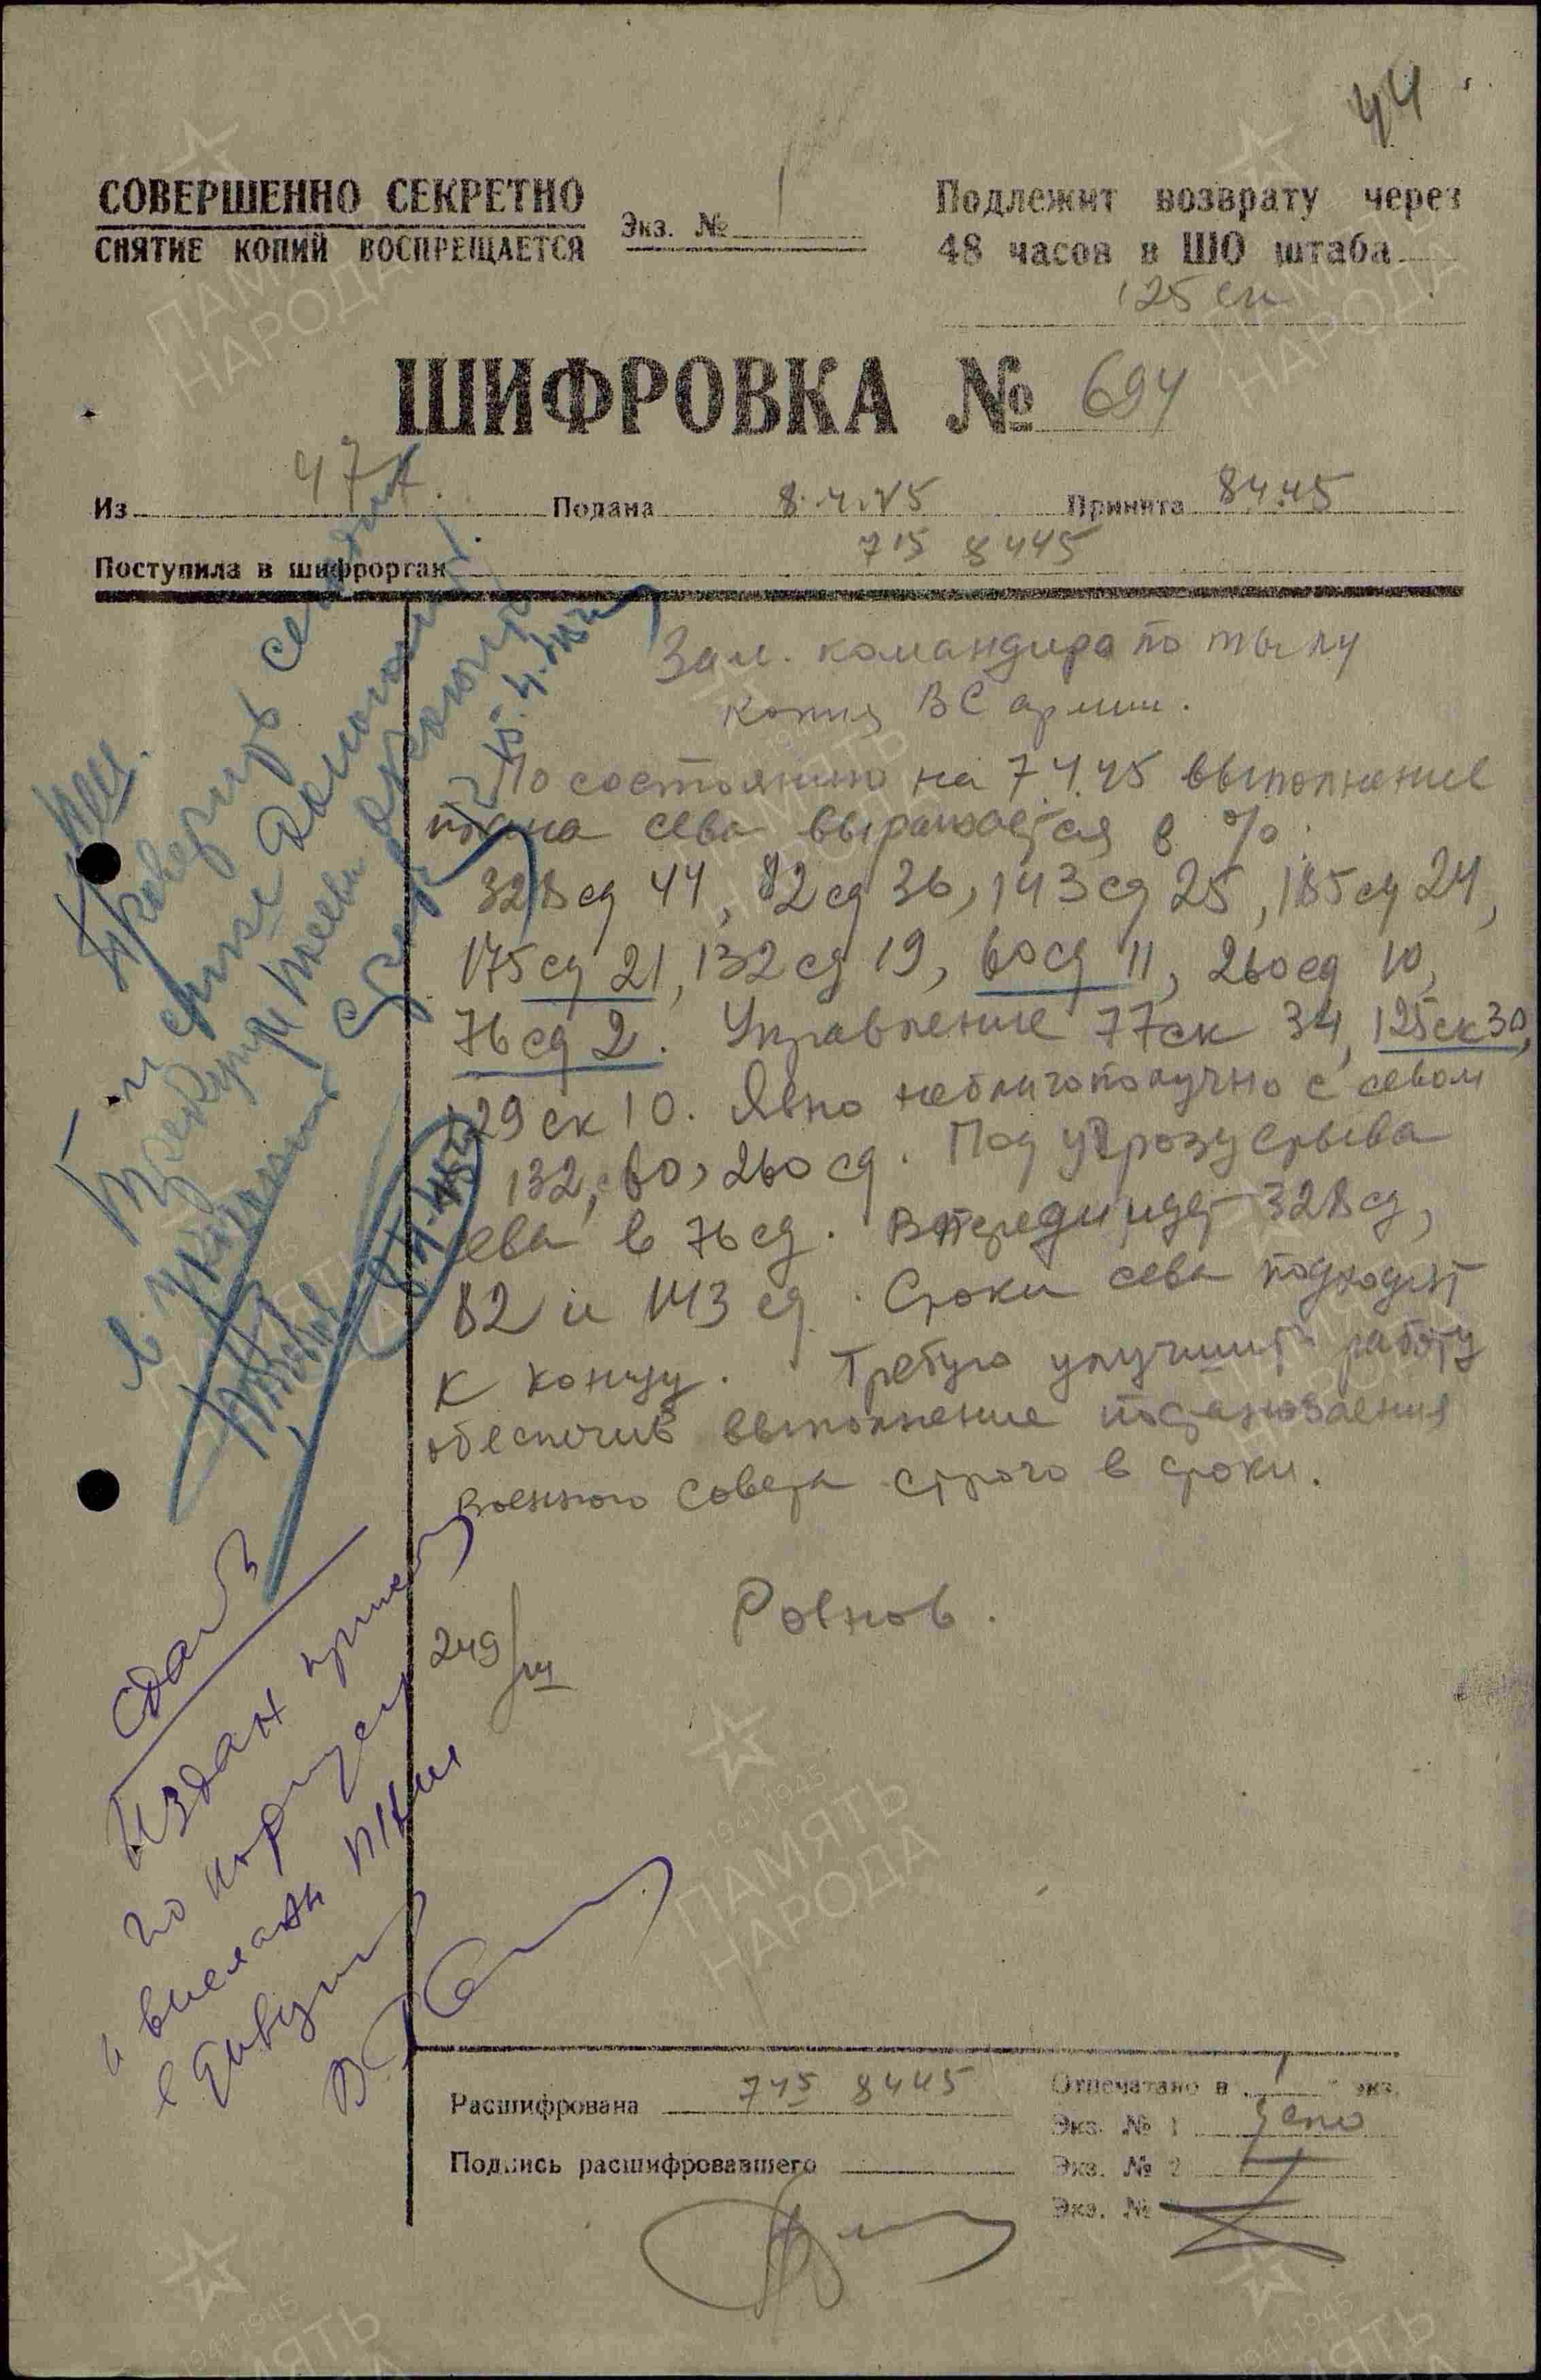 44
СОВЕРШЕННО СЕКРЕТНО
СНЯТИЕ КОПИЙ ВОСПРЕЩАЕТСЯ
Экз. № 1
Подлежит возврату через
48 часов в ШО штаба
125 ск
ШИФРОВКА № 694
Из 47А. Подана 8.4.45 Принята 8.4.45
Поступила в шифрорган 715 8445
Зам. командира по тылу
копия ВС армии.
По состоянию на 7.4.45 выполнение
плана сева выражается в %:
328 сд 44, 82 сд 36, 143 сд 25, 185 сд 24,
175 сд 21, 132 сд 19, 60 сд 11, 260 сд 10,
76 сд 2. Управление 77 ск 34, 125 ск 30,
129 ск 10. Явно неблагополучно с севом
132, 60, 260 сд. Под угрозу срыва
сева в 76 сд. Впереди идет 328 сд,
82 и 143 сд. Сроки сева подходят
к концу. Требую улучшить работу
обеспечив выполнение постановления
Военного Совета строго в сроки.
Ровнов.
249/ш
Издан приказ
по корпусу
и выслан
Расшифрована 745 8445
Подпись расшифровавшего
Отпечатано в 1 экз.
Экз. № 1
Экз. № 2
Экз. №
ПАМЯТЬ
НАРОДА
1941-1945